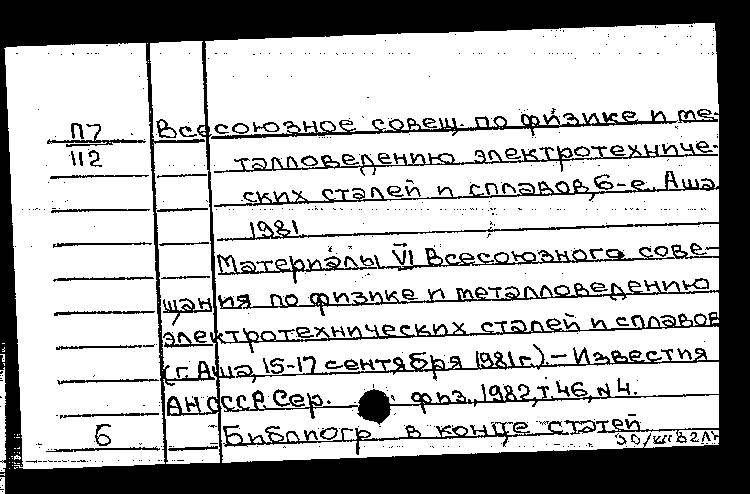 П7 Всесоюзное совещ. по физике и ме-
112 талловедению электротехниче-
ских сталей и сплавов, 6-е. Аша.
1981.
Материалы VI Всесоюзного сове-
щания по физике и металловедению
электротехнических сталей и сплавов
(г. Аша, 15-17 сентября 1981г.). – Известия
АН СССР. Сер. физ., 1982, т. 46, N 4.
Б Библиогр. в конце статей